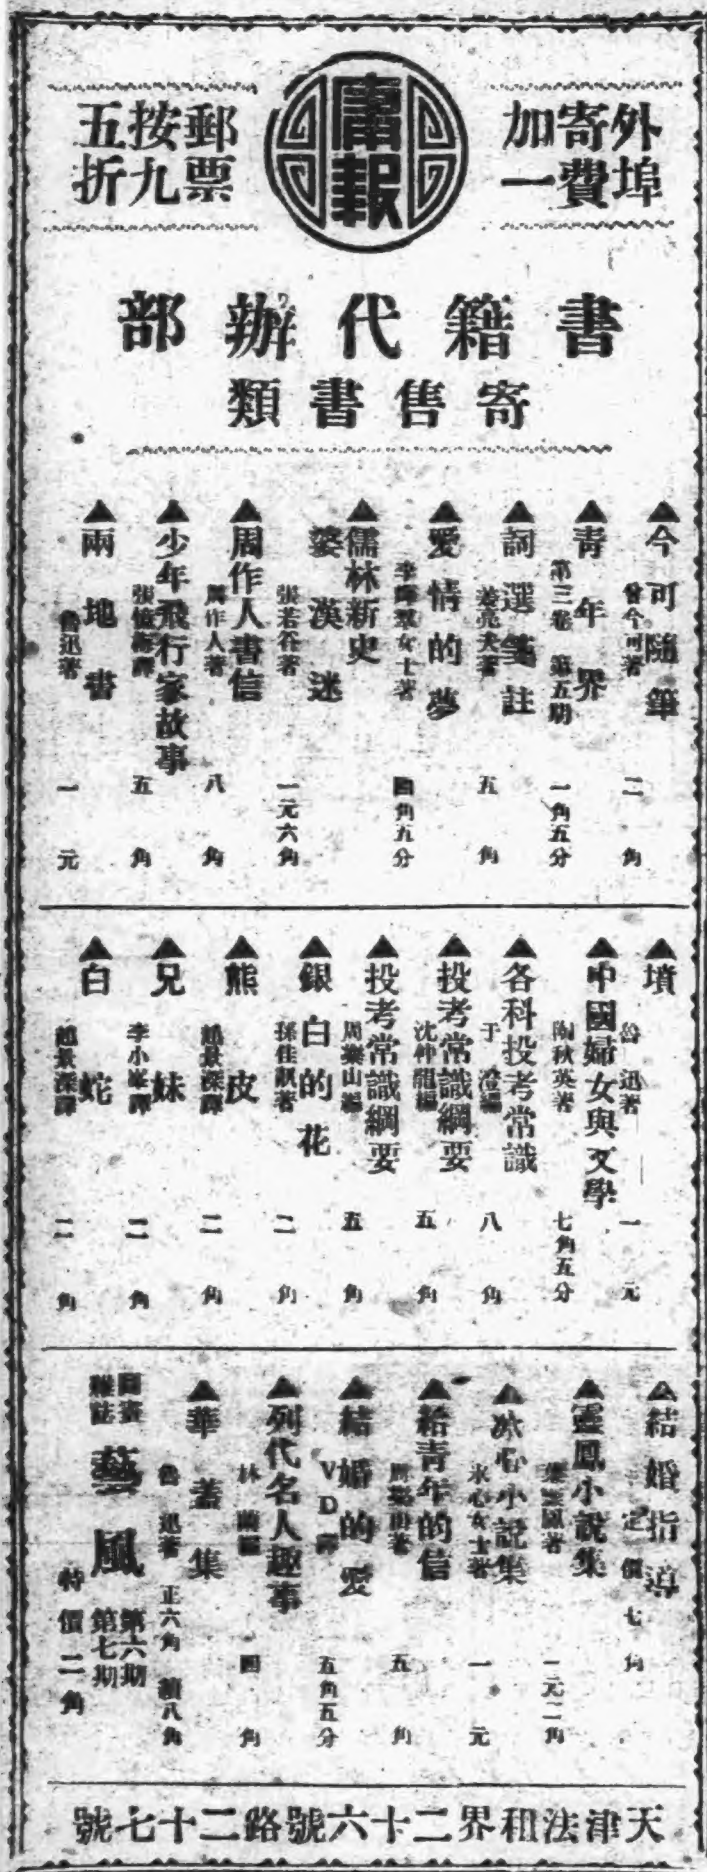 外埠
寄費
加一
庸報
郵票
按九
五折
書籍代辦部
寄售書類
▲今可隨筆
曾今可著 二角
▲青年界
第三卷 第五期 一角五分
▲詞選箋註
姜亮夫著 五角
▲愛情的夢
李輝羣女士著 四角五分
▲儒林新史
婆漢迷
張若谷著 一元六角
▲周作人書信
周作人著 八角
▲少年飛行家故事
張憶梅譯 五角
▲兩地書
魯迅著 一元
▲墳
魯迅著 一元
▲中國婦女與文學
陶秋英著 七角五分
▲各科投考常識
于澄編 八角
▲投考常識綱要
沈仲龍編 五角
▲投考常識綱要
周樂山編 五角
▲銀白的花
孫佳訊著 二角
▲熊皮
趙景深譯 二角
▲兄妹
李小峯譯 二角
▲白蛇
趙景深譯 二角
▲結婚指導
定價七角
▲靈鳳小說集
葉靈鳳著 一元二角
▲冰心小說集
冰心女士著 一元
▲給青年的信
五角
▲結婚的愛
VD譯 五角五分
▲列代名人趣事
林蘭編 四角
▲華蓋集
魯迅著 正六角 續八角
圖畫雜誌 藝風 第六期 第七期
特價二角
天津法租界二十六號路二十七號